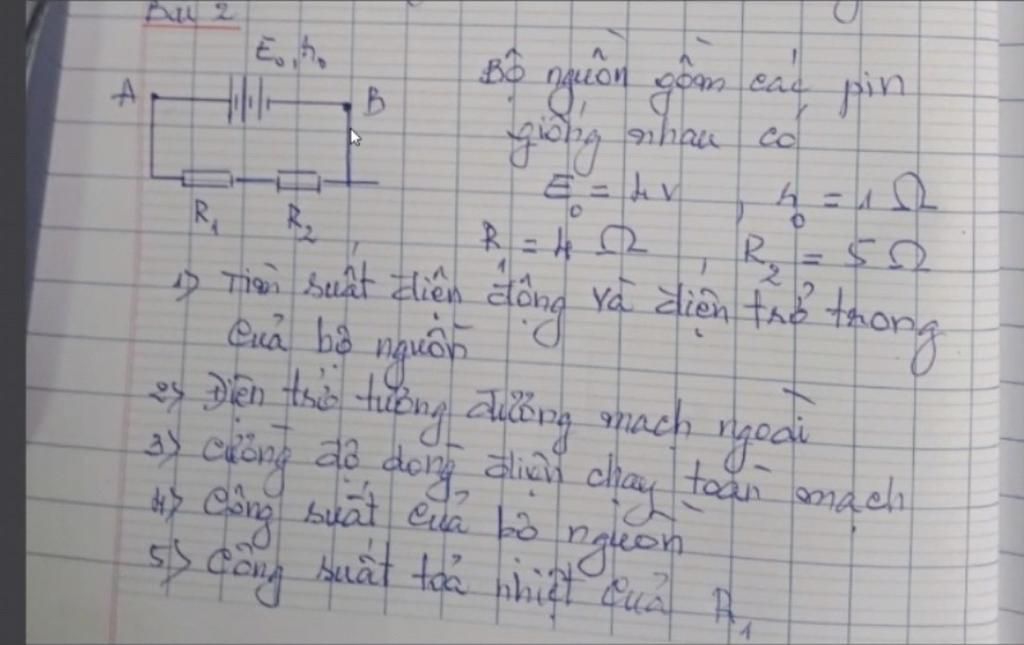 Bài 2
E₀, r₀
A B
R₁ R₂
Bộ nguồn gồm các pin
giống nhau có
E₀ = 4V , r₀ = 1 Ω
R₁ = 4 Ω , R₂ = 5 Ω
1) Tìm suất điện động và điện trở trong
của bộ nguồn
2) Điện trở tương đương mạch ngoài
3) Cường độ dòng điện chạy toàn mạch
4) Công suất của bộ nguồn
5) Công suất toả nhiệt của R₁